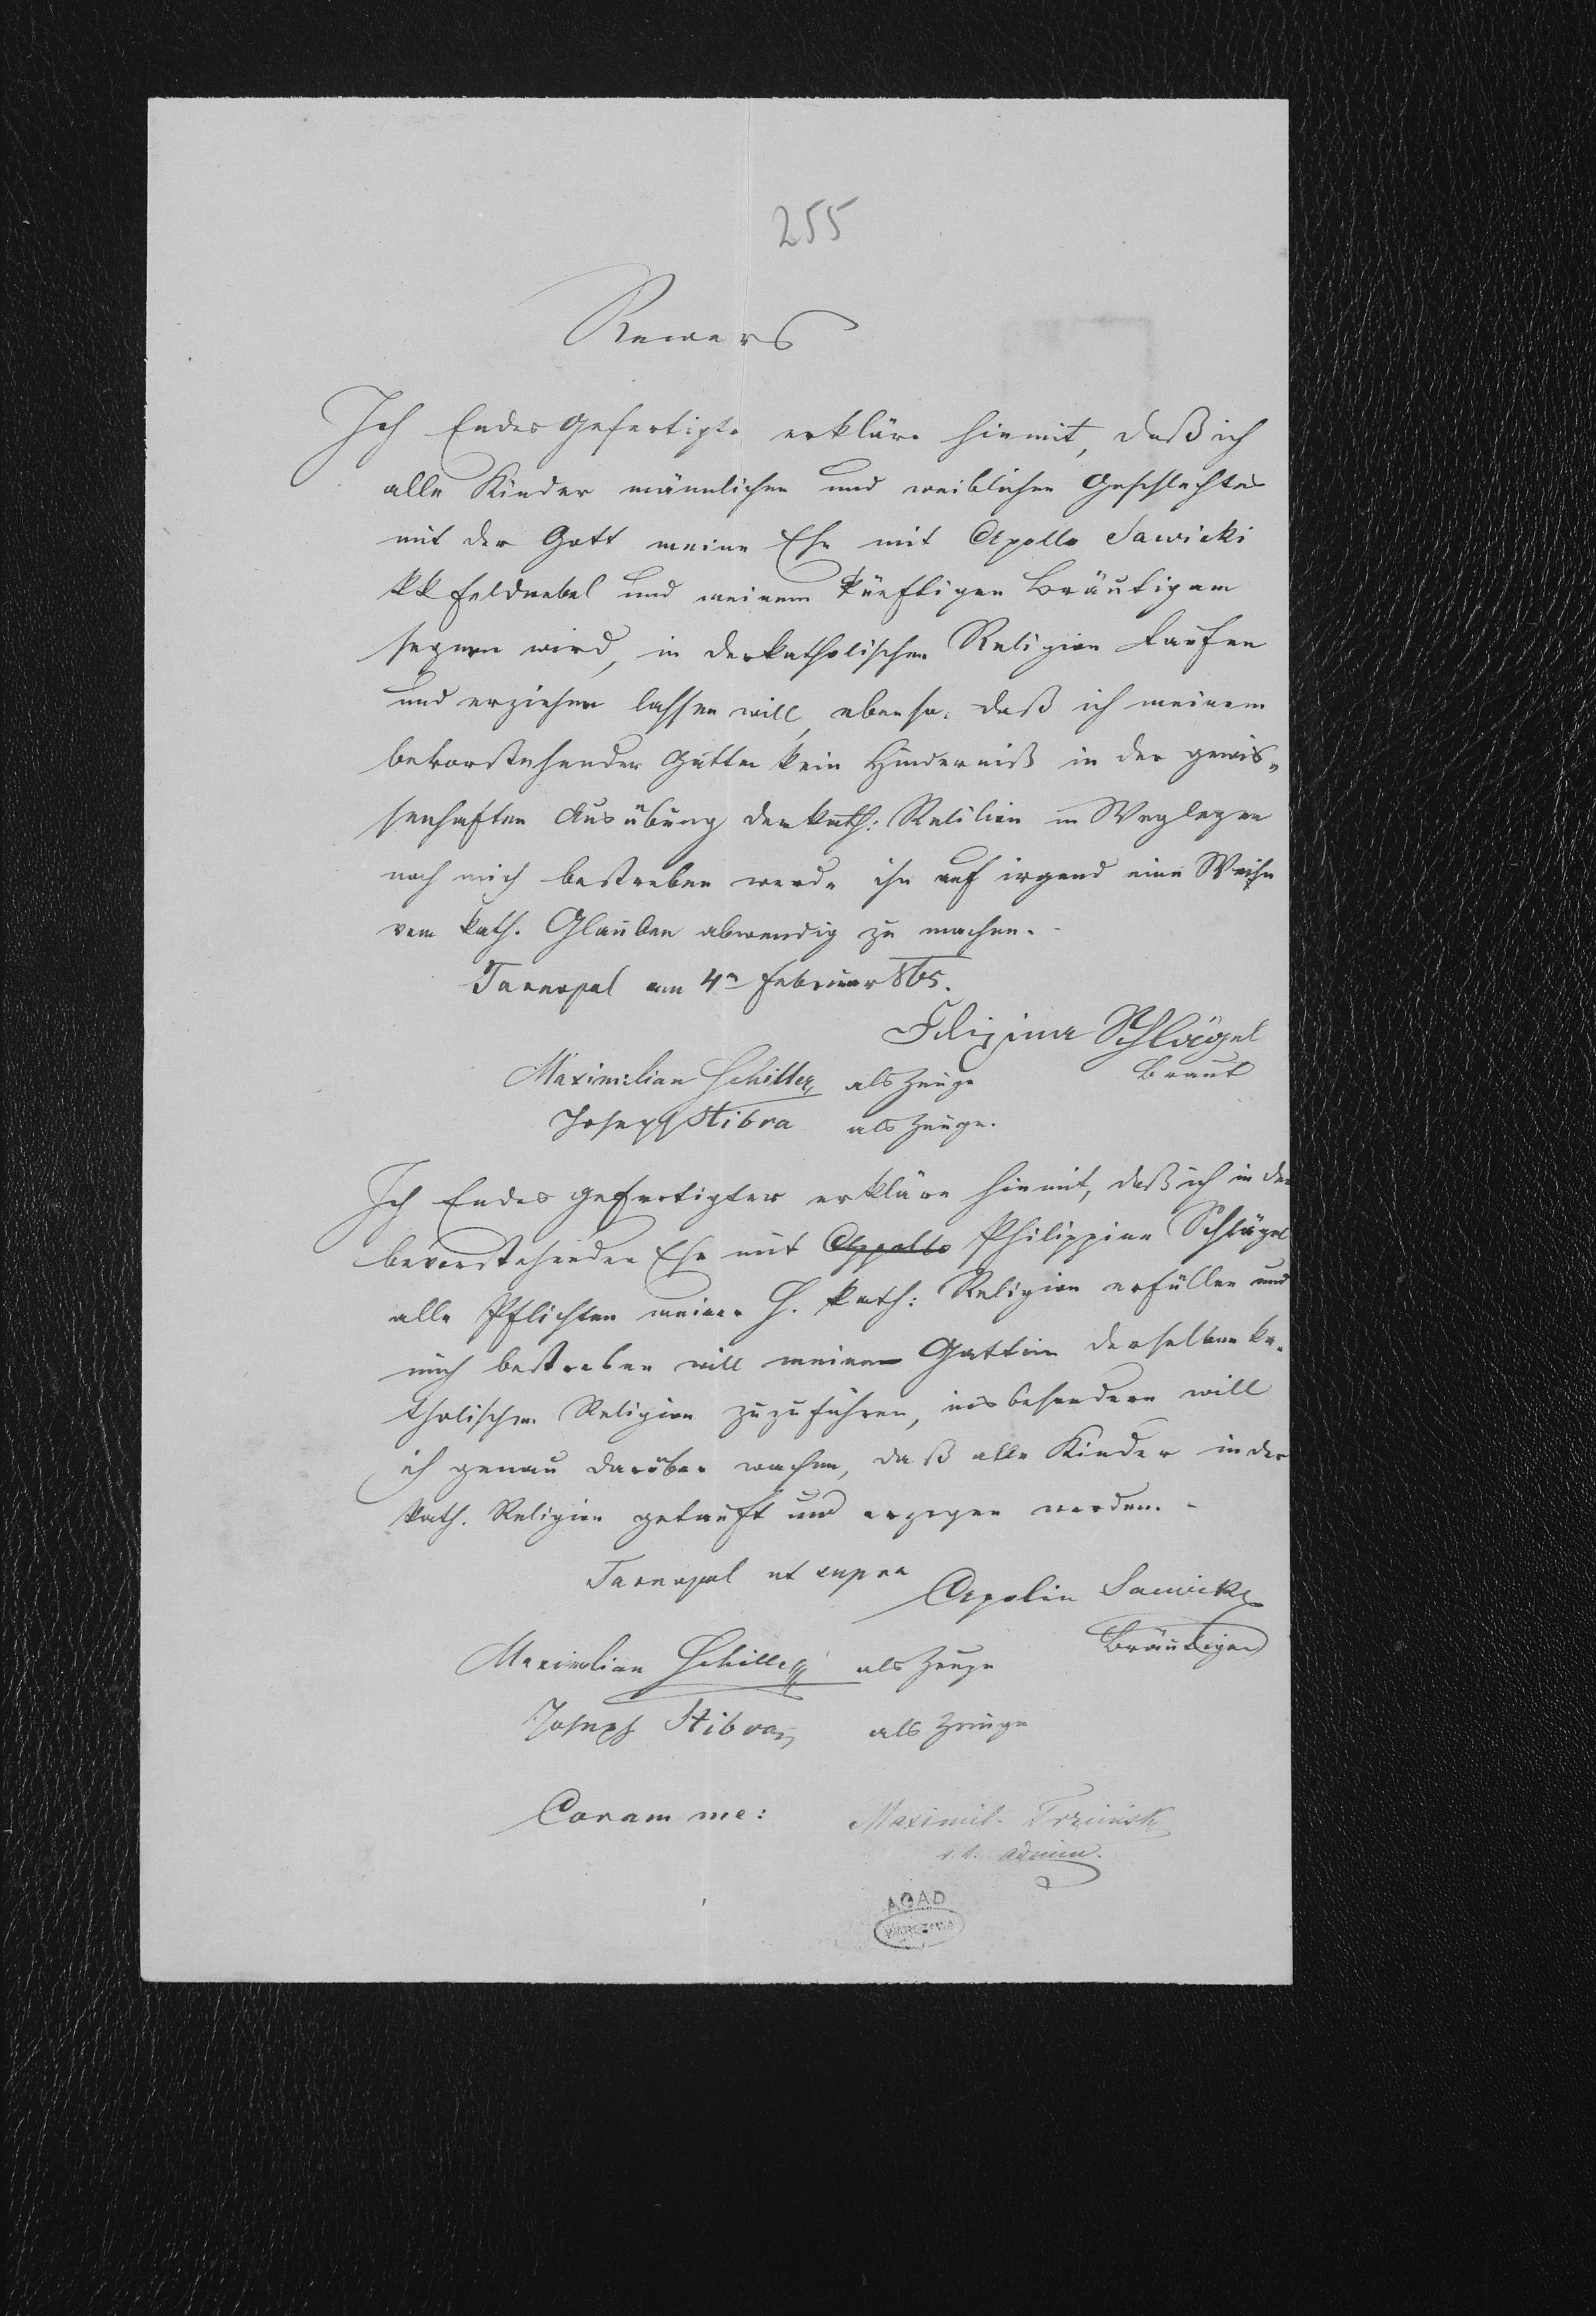 255
Rewers
Ich Endes Gefertigte erkläre hiemit, daß ich
alle Kinder männlichen und weiblichen Geschlechtes
mit der Gott meine Ehe mit Apollo Sawicki
kk Feldwebel und meinem künftigen Bräutigam
segnen wird, in der katholischen Religion taufen
und erziehen lassen will, ebenso, daß ich meinem
bevorstehenden Gatten kein Hinderniß in der gewis„
senhaften Ausübung der kath: Relilion in Weg legen
noch mich bestreben werde ihn auf irgend eine Weise
vom kath. Glauben abwendig zu machen.
Tarnopol am 4n Februar 865.
Filizina Schlögel
Braut
Maximilian Schiller als Zeuge
Joseph Stibra als Zeuge.
Ich Endes Gefertigter erkläre hiemit, daß ich in der
bevorstehenden Ehe mit Appollo Philippine Schlägel
alle Pflichten meiner H. kath: Religion erfüllen und
mich bestreben will meinen Gattin derselben ka„
tholischen Religion zuzuführen, insbesondere will
ich genau darüber wachen, daß alle Kinder in der
kath. Religion getauft und erzogen werden.
Tarnopol ut supra
Apolin Sawicki
Bräutigam
Maximilian Schiller als Zeuge
Joseph Stibra als Zeuge
Coram me:
Maximil.
Admin.
AGAD
WARSZAWA